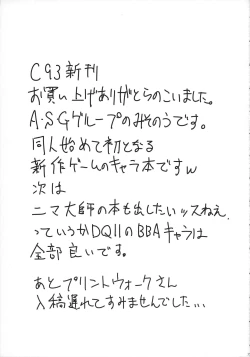 C93新刊
お買い上げありがとうのこいました。
A・S・Gグループのみそのうです。
同人始めて初となる
新作ゲームのキャラ本ですw
次は
ニマ大師の本も出したいッスねえ
っていうかDQ11のBBAキャラは
全部良いです。
あとプリントウォークさん
入稿遅れてすみませんでした...